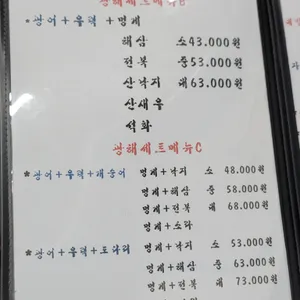 광해세트메뉴B
*광어+우럭+멍게
해삼 소 43.000원
전복 중 53.000원
산낙지 대 63.000원
산새우
석화
광해세트메뉴C
*광어+우럭+래숭어 멍게+낙지 소 48.000원
멍게+해삼 중 58.000원
멍게+전복 대 68.000원
멍게+소라
*광어+우럭+도다리 멍게+낙지 소 53.000원
멍게+해삼 중 63.000원
멍게+전복 대 73.000원